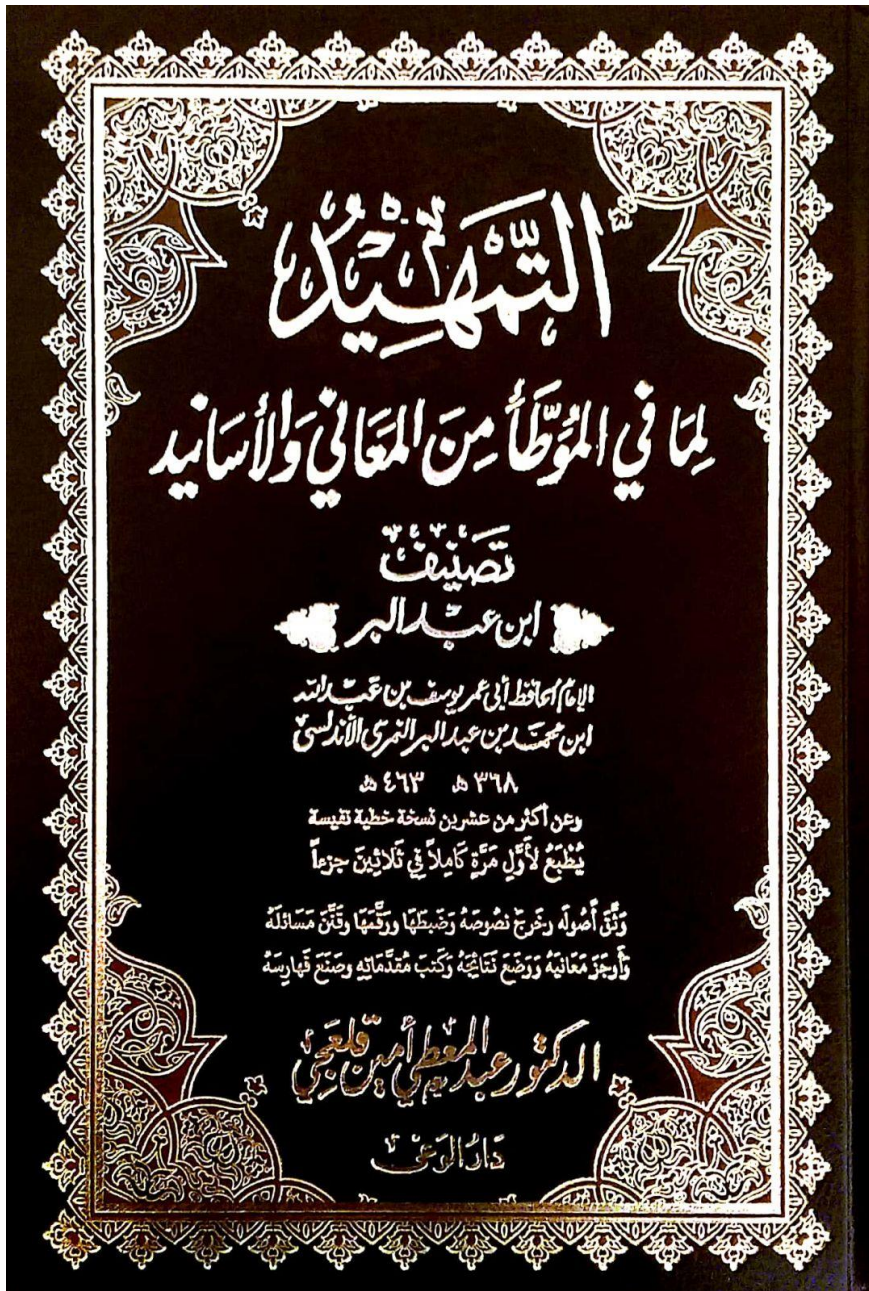 التَّمْهِيدُ
لِمَا فِي المُوَطَّأ مِنَ المَعَانِي وَالأَسَانِيد
تصنيف
ابن عبد البر
الإمام الحافظ أبي عمر يوسف بن عبد الله
ابن محمد بن عبد البر النمري الأندلسي
٣٦٨ هـ ٤٦٣ هـ
وعن أكثر من عشرين نسخة خطية نفيسة
يُطْبَعُ لأَوَّلِ مَرَّةٍ كَامِلاً فِي ثَلاثِينَ جزءاً
وَثَّقَ أُصُولَه وخرج نصُوصَهُ وَضَبَطَهَا ورقَّمَهَا وقَنَّنَ مَسَائلَهُ
وَأَوجَزَ مَعَانيَهُ وَوَضَعَ نَتَائِجَهُ وَكتَبَ مُقَدِّمَاتِهِ وصَنَعَ فَهَارِسَهُ
الدكتور عبد المعطي أمين قلعجي
دَارُ الوَعي